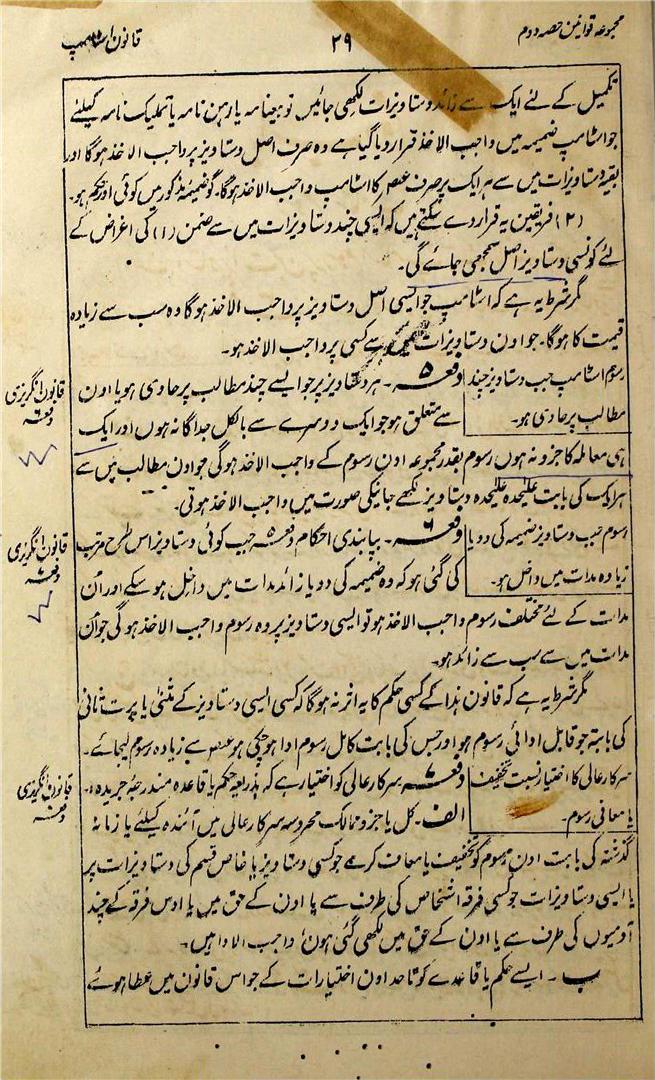 مجموعہ قوانین حصہ دوم
۲۹
قانون اسٹامپ
تکمیل کے لئے ایک سے زائد دستاویزات لکھی جائیں تو بیعنامہ یا رہن نامہ یا تملیک نامہ کیلئے
جو اسٹامپ ضمیمہ میں واجب الاخذ قرار دیا گیا ہے وہ صرف اصل دستاویز پر واجب الاخذ ہوگا اور
بقیہ دستاویزات میں سے ہر ایک پر صرف عہ کا اسٹامپ واجب الاخذ ہوگا۔ گو ضمیمہ مذکور میں کوئی اور حکم ہو۔
(۲) فریقین یہ قرار دے سکتے ہیں کہ ایسی چند دستاویزات میں سے ضمن (۱) کی اغراض کے
لئے کونسی دستاویز اصل سمجھی جائے گی۔
مگر شرط یہ ہے کہ اسٹامپ جو ایسی اصل دستاویز پر واجب الاخذ ہوگا وہ سب سے زیادہ
قیمت کا ہوگا۔ جو اون دستاویزات میں سے کسی پر واجب الاخذ ہو۔
رسوم اسٹامپ جب دستاویز چند
مطالب پر حاوی ہو۔
دفعہ ۵۔ ہر دستاویز پر جو ایسے چند مطالب پر حاوی ہو یا اون
سے متعلق ہو جو ایک دوسرے سے بالکل جداگانہ ہوں اور ایک
قانون انگریزی
دفعہ ۵
ہی معاملہ کا جزو نہ ہوں رسوم بقدر مجموعہ اون رسوم کے واجب الاخذ ہوگی جو اون مطالب میں سے
ہر ایک کی بابت علیحدہ علیحدہ دستاویز لکھے جانیکی صورت میں واجب الاخذ ہوتی۔
رسوم جب دستاویز ضمیمہ کی دو یا
زیادہ مدات میں داخل ہو۔
دفعہ ۶۔ بپابندی احکام دفعہ ۵ جب کوئی دستاویز اس طرح مرتب
کی گئی ہو کہ وہ ضمیمہ کی دو یا زائد مدات میں داخل ہو سکے اور اُن
قانون انگریزی
مدات کے لئے مختلف رسوم واجب الاخذ ہو تو ایسی دستاویز پر وہ رسوم واجب الاخذ ہوگی جو اُن
مدات میں سے سب سے زائد ہو۔
مگر شرط یہ ہے کہ قانون ہذا کے کسی حکم کا یہ اثر نہ ہوگا کہ کسی ایسی دستاویز کے مثنیٰ یا پرت ثانی
کی بابتہ جو قابل ادائی رسوم ہو اور جس کی بابت کامل رسوم ادا ہو چکی ہو عہ سے زیادہ رسوم لیجائے۔
سرکار عالی کا اختیار نسبت تخفیف
یا معافی رسوم۔
دفعہ ۷۔ سرکار عالی کو اختیار ہے کہ بذریعہ حکم یا قاعدہ مندرجہ جریدہ۔
الف۔ کل یا جزو ممالک محروسہ سرکار عالی میں آئندہ کیلئے یا زمانہ
قانون انگریزی
گذشتہ کی بابت اون رسوم کو تخفیف یا معاف کرے جو کسی دستاویز یا خاص قسم کی دستاویزات پر
یا ایسی دستاویزات جو کسی فرقہ اشخاص کی طرف سے یا اون کے حق میں یا اوس فرقہ کے چند
آدمیوں کی طرف سے یا اون کے حق میں لکھی گئی ہوں واجب الادا ہیں۔
ب۔ ایسے حکم یا قاعدے کو تا حد اون اختیارات کے جو اس قانون میں عطا ہوئے